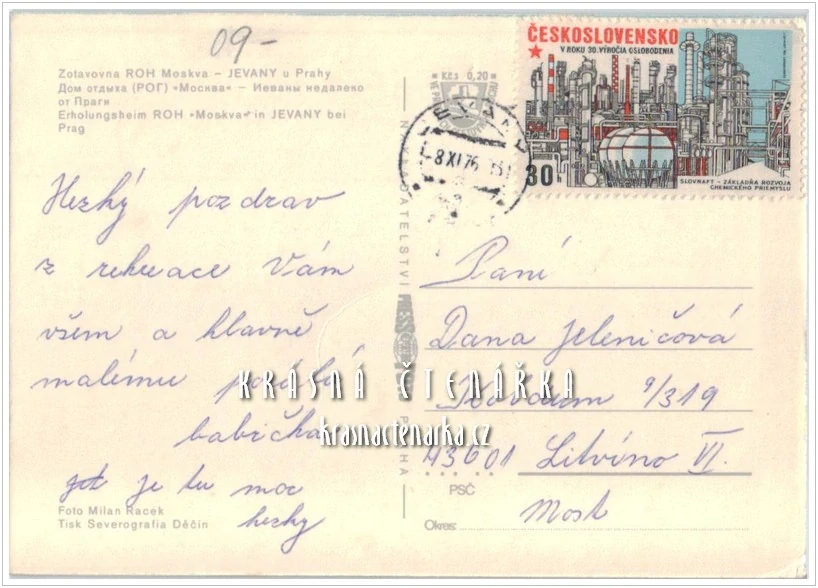 09-
Zotavovna ROH Moskva – JEVANY u Prahy
Дом отдыха (РОГ) »Москва« — Иеваны недалеко
от Праги
Erholungsheim ROH »Moskva« in JEVANY bei
Prag
Kčs 0,20
ČESKOSLOVENSKO
V ROKU 30. VÝROČIA OSLOBODENIA
30
SLOVNAFT – ZÁKLADŇA ROZVOJA
CHEMICKÉHO PRIEMYSLU
JEVANY
-8 XI 76
Hezký pozdrav
z rekreace Vám
všem a hlavně
malému posílá
babička
je tu moc
hezky
Foto Milan Racek
Tisk Severografia Děčín
NAKLADATELSTVÍ
PRAHA
Paní
Dana Jeleničová
9/319
43601 Litvíno VI.
PSČ
Most
Okres:
KRÁSNÁ ČTENÁŘKA
krasnactenarka.cz